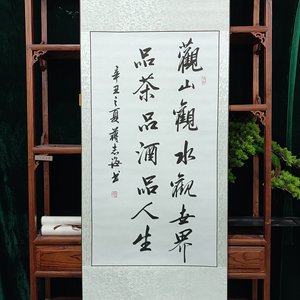 觀山觀水觀世界
品茶品酒品人生
辛丑之夏蔣志海书